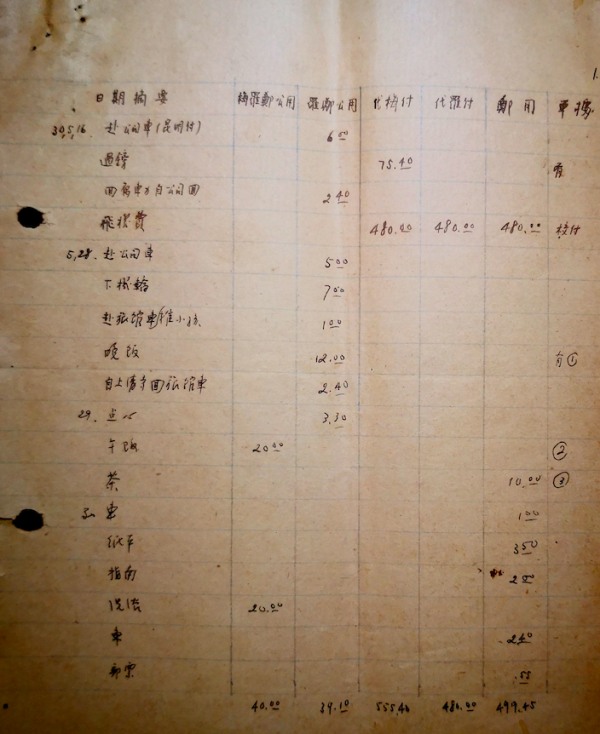 1.
日期摘要 梅羅鄭公用 羅鄭公用 代梅付 代羅付 鄭用 單據
30,5,16. 赴公司車(昆明付) 6.00
過磅 75.40 有
回寓車 自公司回 2.40
飛機費 480.00 480.00 480.00 梅付
5,28. 赴公司車 5.00
下機 7.00
赴旅館車 1.00
晚飯 12.00 有①
自上清寺回旅館車 2.40
29. 点心 3.30
午飯 20.00 ②
茶 10.00 ③
車 1.00
3.50
指南 2.00
20.00
車 2.40
郵票 .55
40.00 39.10 555.40 480.00 499.45